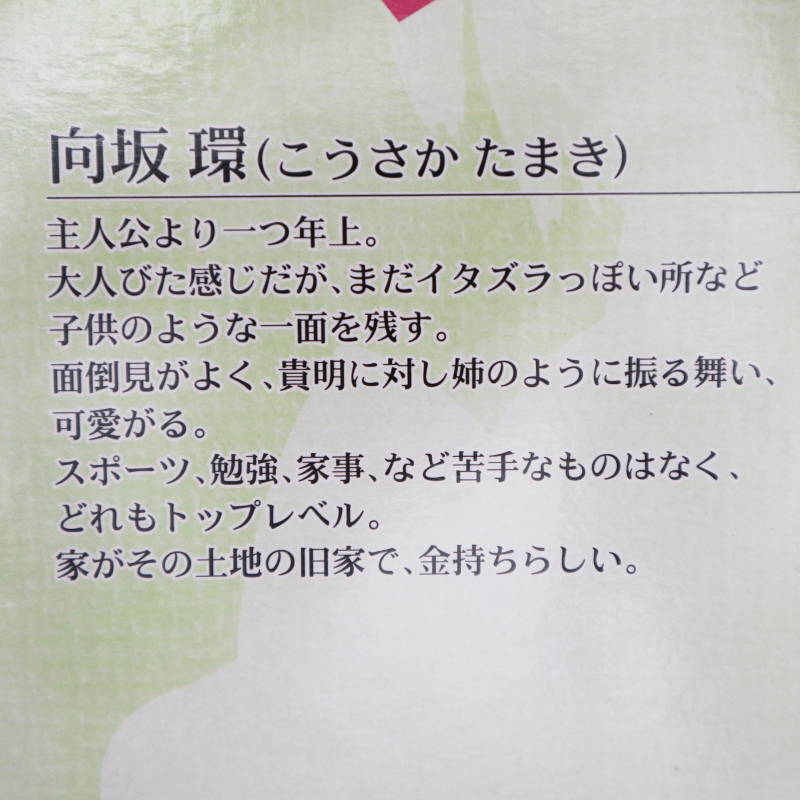 向坂 環(こうさか たまき)
主人公より一つ年上。
大人びた感じだが、まだイタズラっぽい所など
子供のような一面を残す。
面倒見がよく、貴明に対し姉のように振る舞い、
可愛がる。
スポーツ、勉強、家事、など苦手なものはなく、
どれもトップレベル。
家がその土地の旧家で、金持ちらしい。